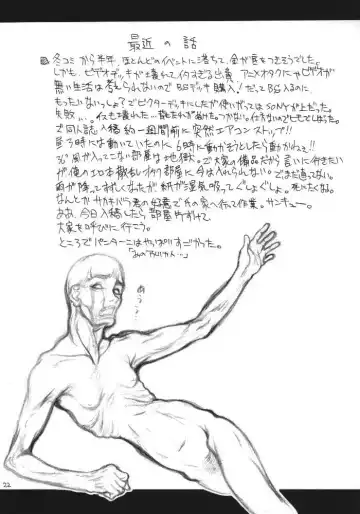 最近の話
冬コミから半年、ほとんどのイベントに落ちて、金が底をつきそうでした。
しかも、ビデオデッキが壊れて付すぎる出費。アニメオタクにゃビデオが
無い生活は考えられないのでBSデッキ購入!だってBS入るのに
もったいないっしょ?でビクターデッキにしたが使いがってはSONYが上だった。
失敗…。イスも壊れた…
で同人誌入稿約一週間前に突然エアコンストップ!!
昼3時には動いていたのに6時に動かそうとしたら動かねえ!!
風が入ってこない部屋は地獄。で大家の備品だから言いに行きたい
が俺のエロ本散乱しまくり部屋に今は入れられない。でまだ直ってない。
雨が降ってすずしくなったが紙が湿気吸ってぐしょぐしょ。死にたくなる。
なんとかサカキバラ君の好意で氏の家へ行って作業。サンキュー。
ああ、今日入稿したら部屋片ずけて
大家を呼びに行こう。
ところでバンターニはやっぱりすごかった。
「あのアメリカン…」
めう?
22